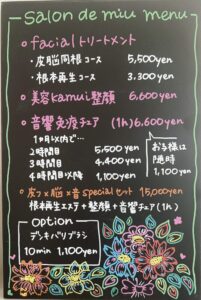 Salon de miu menu
○ facial トリートメント
・皮脳同根コース 5,500yen
・根本再生コース 3,300yen
○ 美容Kamui整顔 6,600yen
○ 音響免疫チェア (1h) 6,600yen
1ヶ月以内で…
2時間目 5,500yen
3時間目 4,400yen
4時間目以降 1,100yen
お子様は
随時
1,100yen
○ 皮フ×脳×音 specialセット 15,000yen
根本再生エステ+整顔+音響チェア(1h)
option
デンキバリブラシ
10min 1,100yen